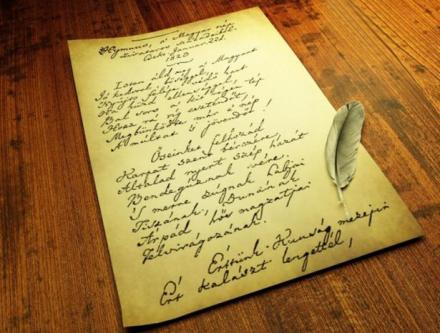 Hymnus, a' Magyar nép
zivataros századaiból.
Cseke, Januar. 22d.
1823
Isten áldd meg a' Magyart
Jó kedvvel, bőséggel,
Nyújts feléje védő kart
Ha küzd ellenséggel;
Bal sors a' kit régen tép
Hozz rá víg esztendőt,
Megbünhödte már e' nép
A' multat 's jövendőt!
Őseinket felhozád
Kárpát szent bérczére,
Általad nyert szép hazát
Bendegúznak vére.
'S merre zúgnak habjai
Tiszának, Dunának
Árpád hős magzatjai
Felvirágozának.
Értünk Kunság mezein
Ért kalászt lengettél,